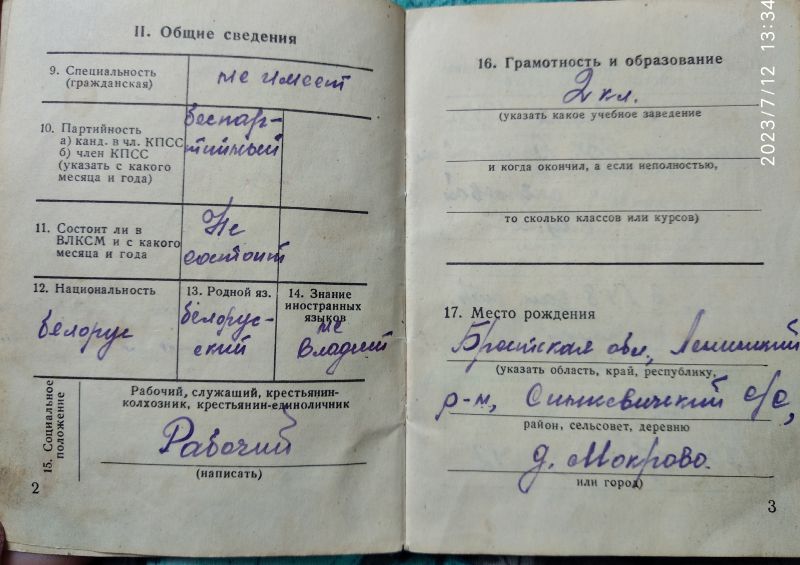 II. Общие сведения
9. Специальность
(гражданская)
не имеет
10. Партийность
а) канд. в чл. КПСС
б) член КПСС
(указать с какого
месяца и года)
беспар-
тийный
11. Состоит ли в
ВЛКСМ и с какого
месяца и года
Не
состоит
12. Национальность
белорус
13. Родной яз.
белорус-
ский
14. Знание
иностранных
языков
не
владеет
15. Социальное
положение
Рабочий, служащий, крестьянин-
колхозник, крестьянин-единоличник
Рабочий
(написать)
2
16. Грамотность и образование
2 кл.
(указать какое учебное заведение
и когда окончил, а если неполностью,
то сколько классов или курсов)
17. Место рождения
Брестская обл., Ленинский
(указать область, край, республику,
р-н, Синкевичский с/с,
район, сельсовет, деревню
д. Мокрово.
или город)
3
2023/7/12 13:34